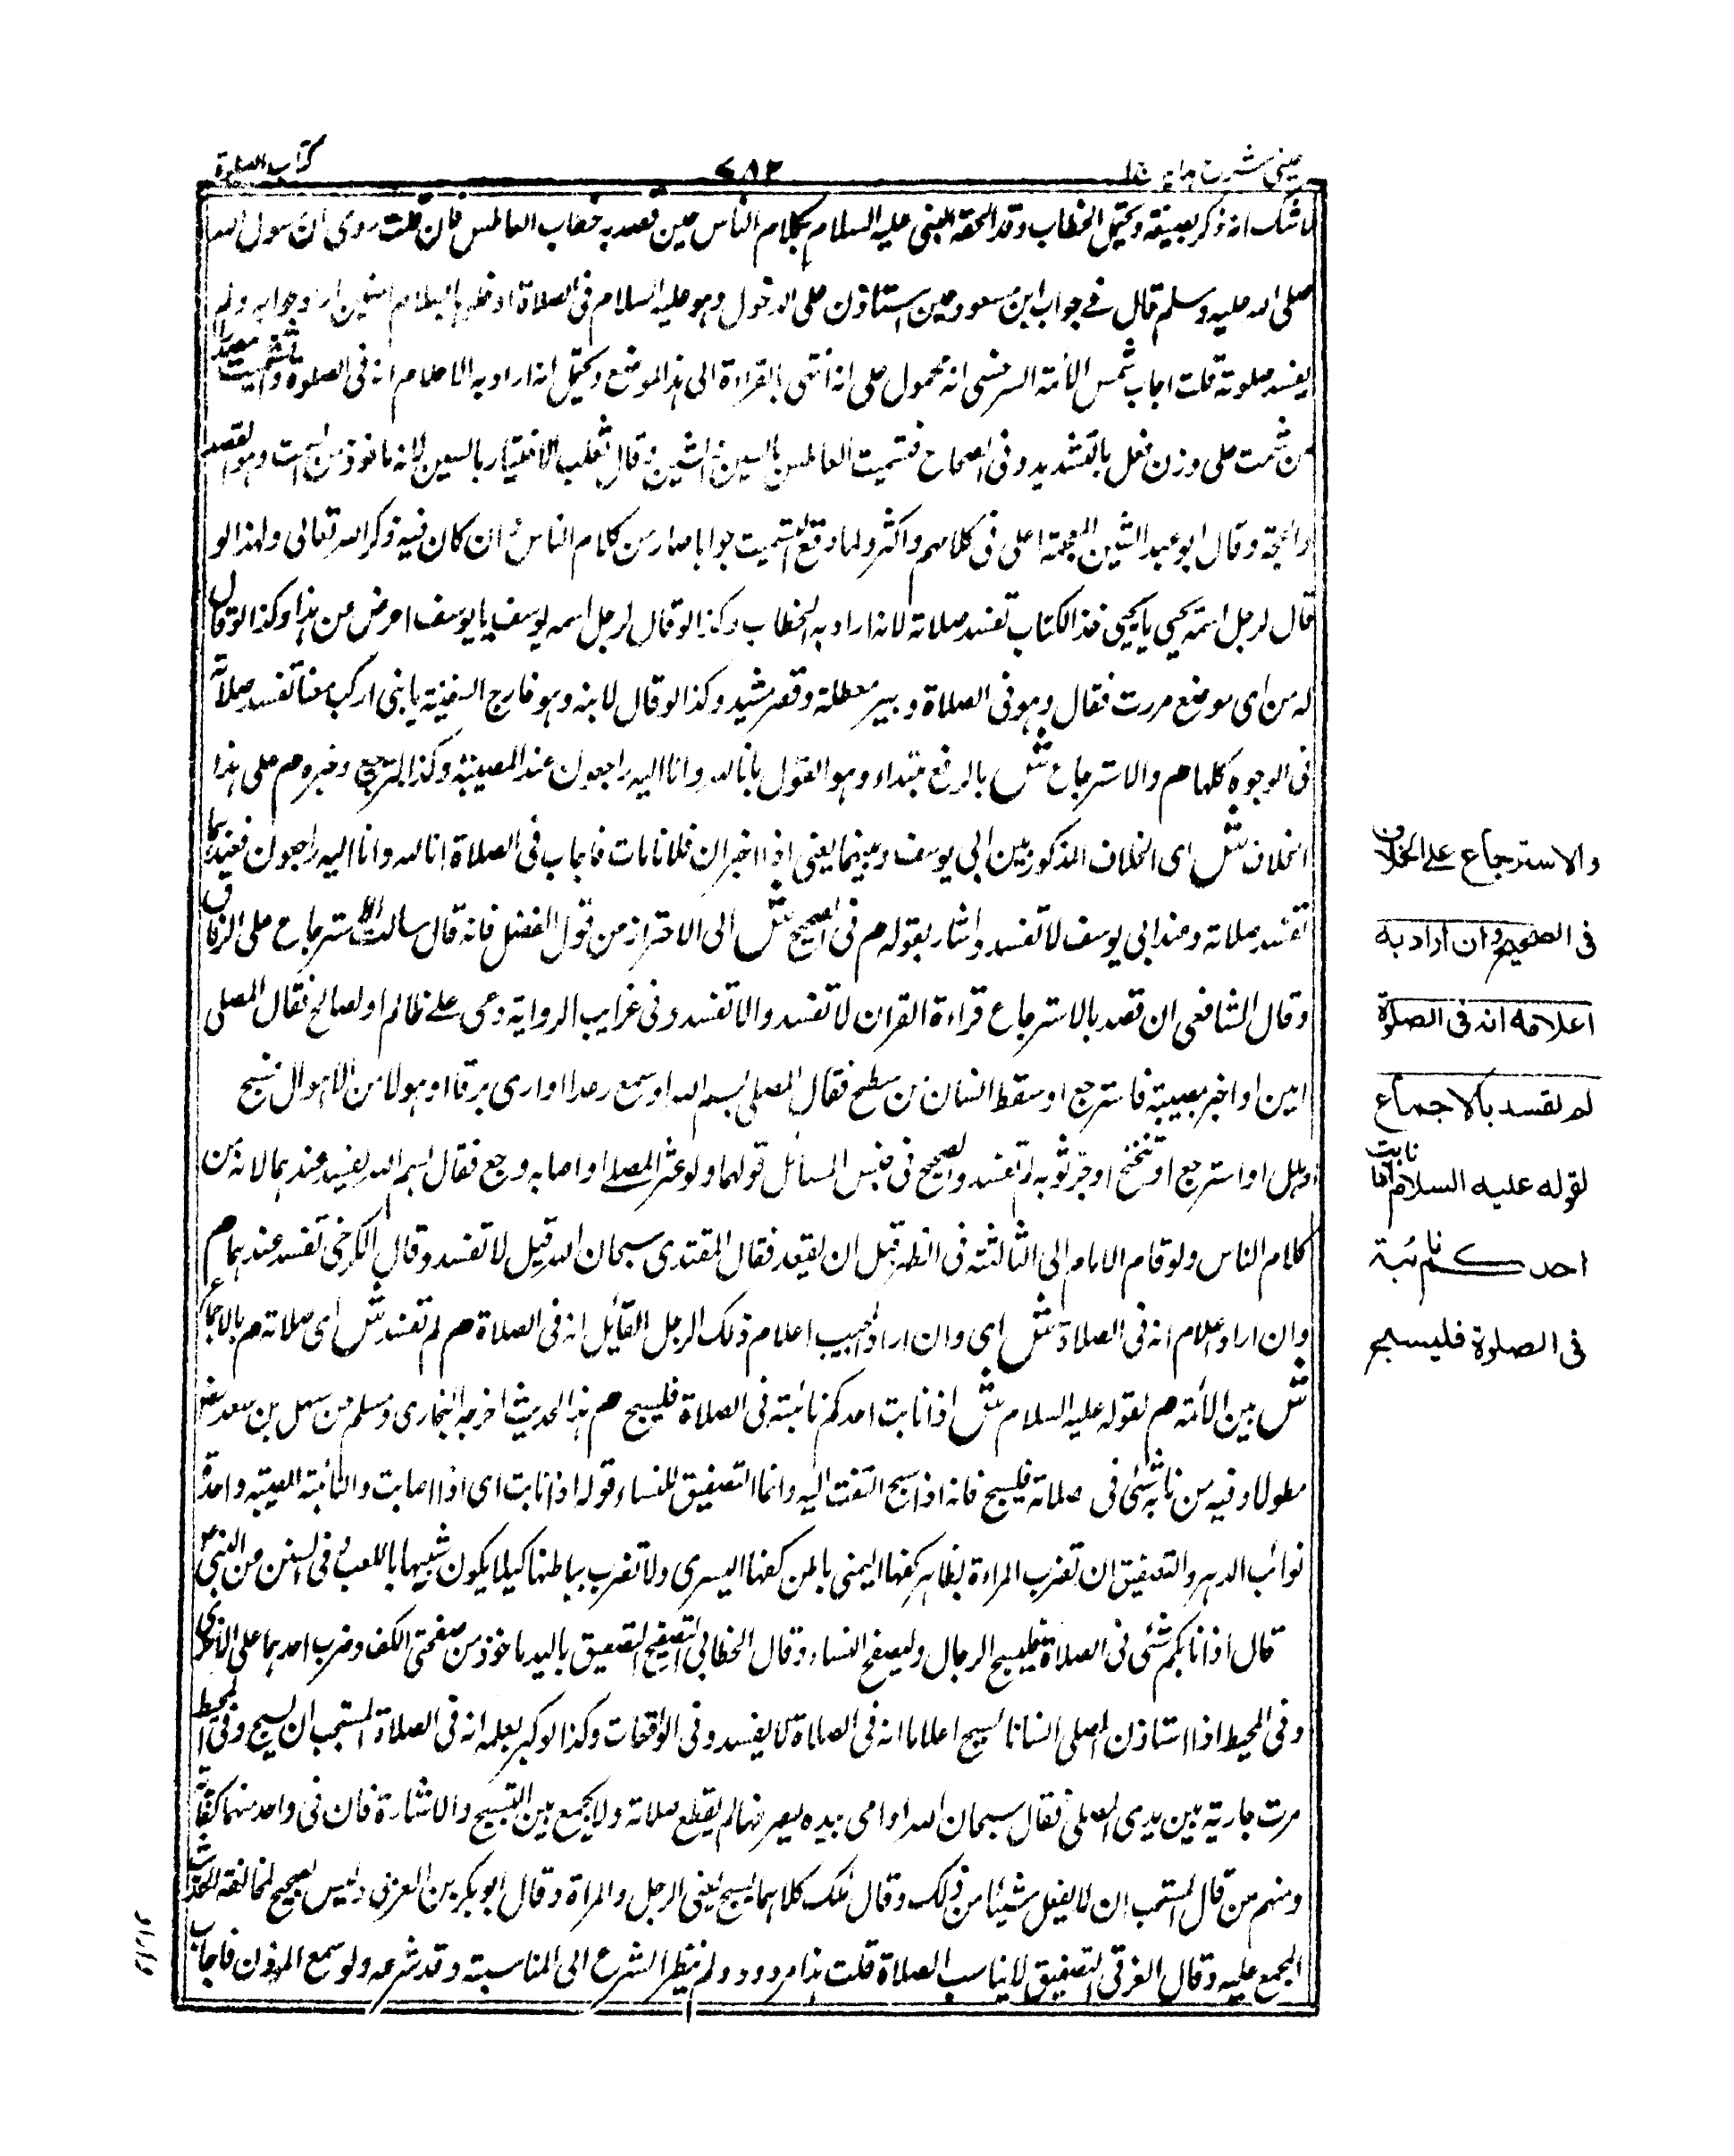 عینی شرح ہدایہ ج ۱
۷۸۲
کتاب الصلوة
لا شک انه ذکر بصیغته ویحتمل الخطاب وقد الحقه النبی علیه السلام بکلام الناس حین قصد به خطاب العاطس فان قلت روی ان رسول الله
صلی الله علیه وسلم قال فی جواب ابن مسعود حین استاذن علی الدخول وهو علیه السلام فی الصلاة ادخلوها بسلام امنین اراد جوابه ولم
یفسد صلوته قلت اجاب شمس الائمة السرخسی انه محمول علی انه انتهی بالقراءة الی هذا الموضع ویحتمل انه اراد به الاعلام انه فی الصلوة والتشمیت مصدر
من شمت علی وزن فعل بالتشدید وفی الصحاح تشمیت العاطس بالسین والشین وقال ثعلب الاختیار بالسین لانه ماخوذ من السمت وهو القصد
والمحجة وقال ابو عبید الشین المعجمة اعلی فی کلامهم واکثر ولما وقع التشمیت جوابا صار من کلام الناس وان کان فیه ذکر الله تعالی ولهذا لو
قال لرجل اسمه یحیی یا یحیی خذ الکتاب تفسد صلاته لانه اراد به الخطاب وکذا لو قال لرجل اسمه یوسف یا یوسف اعرض عن هذا وکذا لو قال
له من ای موضع مررت فقال وهو فی الصلاة وبیر معطلة وقصر مشید وکذا لو قال لابنه وهو خارج السفینة یا بنی ارکب معنا تفسد صلاته
فی الوجوه کلها م والاسترجاع ش بالرفع مبتداء وهو القول بانا لله وانا الیه راجعون عند المصیبة وکذا الترجیع وخبره م علی هذا
الخلاف ش ای الخلاف المذکور بین ابی یوسف وبینهما یعنی اذا اخبر ان فلانا مات فاجاب فی الصلاة انا لله وانا الیه راجعون فعندهما
تفسد صلاته وعند ابی یوسف لا تفسد واشار بقوله م فی الصحیح ش الی الاحتراز من قول الفضل فانه قال سالت الاسترجاع علی الوفاق
وقال الشافعی ان قصد بالاسترجاع قراءة القران لا تفسد والا تفسد وفی غرایب الروایة دعی علی ظالم او لصالح فقال المصلی
امین او اخبر بمصیبة فاسترجع او سقط انسان من سطح فقال المصلی بسم الله او سمع رعدا او رای برقا او هولا من الاهوال فسبح
او هلل او استرجع او تنحنح او جر ثوبه لم تفسد والصحیح فی جنس المسائل قولهما ولو عثر المصلی او اصابه وجع فقال بسم الله یفسد عندهما لانه من
کلام الناس ولو قام الامام الی الثالثة فی الظهر قبل ان یقعد فقال المقتدی سبحان الله قیل لا تفسد وقال الکرخی تفسد عندهما م
وان اراد اعلامه انه فی الصلاة ش ای وان اراد المجیب اعلام ذلک الرجل القائل انه فی الصلاة م لم تفسد ش ای صلاته م بالاجماع
ش بین الائمة م لقوله علیه السلام ش اذا نابت احدکم نائبة فی الصلاة فلیسبح م هذا الحدیث اخرجه البخاری ومسلم من سهل بن سعد
مطولا وفیه من نابه شئ فی صلاته فلیسبح فانه اذا سبح التفت الیه وانما التصفیق للنساء قوله اذا نابت ای اذا اصابت والنائبة المصیبة واحدة
نوائب الدهر والتصفیق ان تضرب المراءة بظاهر کفها الیمنی باطن کفها الیسری ولا تضرب بباطنها کیلا یکون شبیها باللعب وفی السنن من النبی
قال اذا نابکم شئ فی الصلاة فلیسبح الرجال ولیصفح النساء وقال الخطابی التصفیح التصفیق بالید ماخوذ من صفحتی الکف وضرب احدهما علی الاخری
وفی المحیط اذا استاذن المصلی انسانا فسبح اعلاما انه فی الصلاة لا یفسد وفی الواقعات وکذا لو کبر یعلمه انه فی الصلاة المستحب ان یسبح وفی المحیط
مرت جاریة بین یدی المصلی فقال سبحان الله او اومی بیده لیصرفها لم یقطع صلاته ولا یجمع بین التسبیح والاشارة فان فی واحد منهما کفایة
ومنهم من قال المستحب ان لا یفعل شیئا من ذلک وقال ملک کلاهما یسبح یعنی الرجل والمراة وقال ابو بکر بن العربی ولیس بصحیح لمخالفة الحدیث
المجمع علیه وقال الغزی التصفیق لا یناسب الصلاة قلت هذا مردود ولم ینظر الشرع الی المناسبة وقد شرعه ولو سمع الموذن فاجاب
والاسترجاع علی الخلاف
فی الصحیح وان اراد به
اعلامه انه فی الصلوة
لم تفسد بالاجماع
لقوله علیه السلام اذا نابت
احدکم نائبة
فی الصلوة فلیسبح